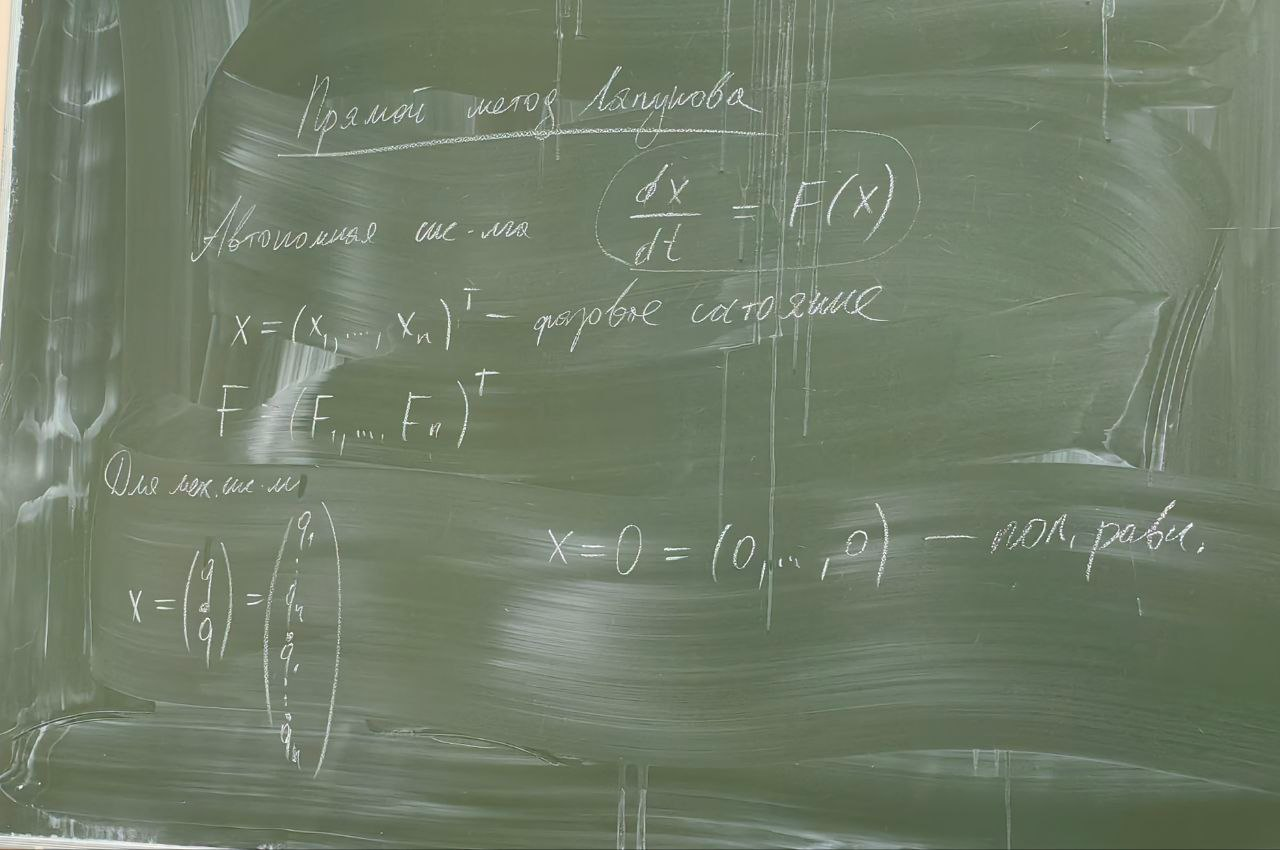 Прямой метод Ляпунова
Автономная сис-ма dx/dt = F(x)
x = (x₁, ..., xₙ)ᵀ — фазовое состояние
F = (F₁, ..., Fₙ)ᵀ
Для мех. сис-м
x = (q q̇) = (q₁ ⋮ qₙ q̇₁ ⋮ q̇ₙ)
x = 0 = (0, ..., 0) — пол. равн.